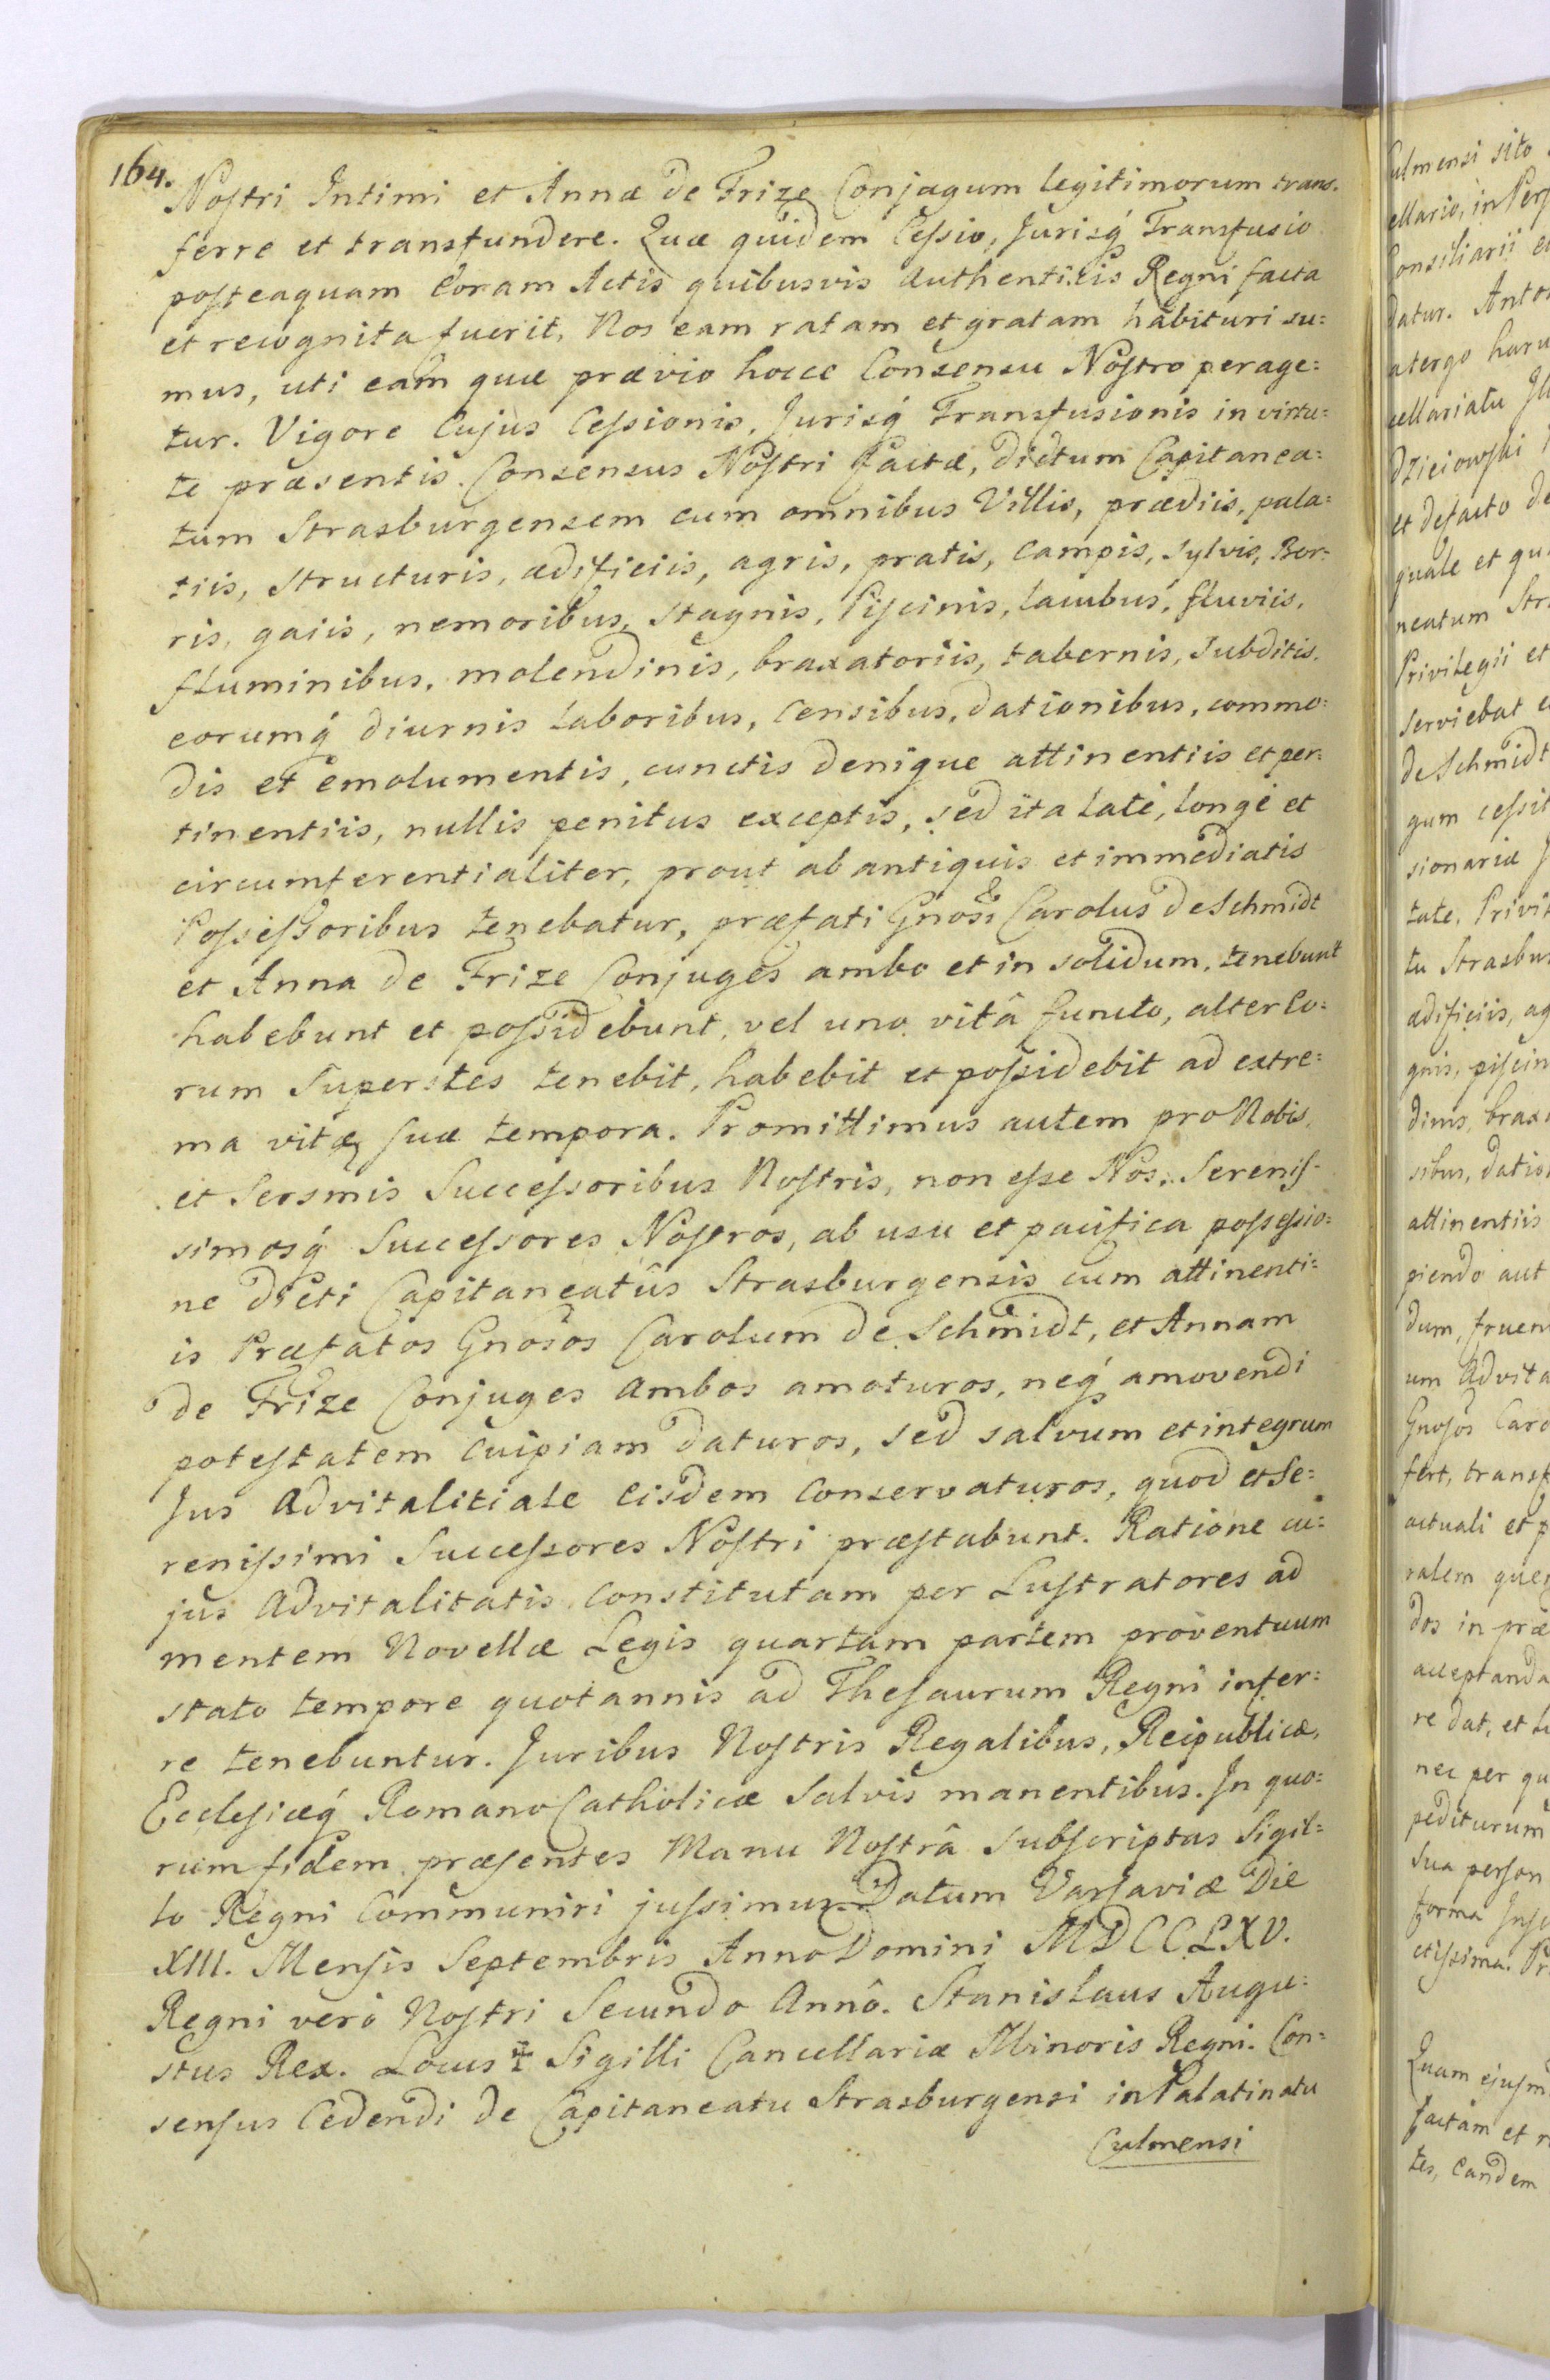 164.
Nostri Intimi et Annæ de Frize Conjugum legitimorum trans-
ferre et transfundere. Quæ quidem Cessio, Jurisq́ Transfusio
posteaquam Coram Actis quibusvis Authenticis Regni facta
et recognita fuerit, Nos eam ratam et gratam habituri su=
mus, uti eam quæ prævio hocce Consensu Nostro perage=
tur. Vigore Cujus Cessionis, Jurisq́ Transfusionis in virtu=
te præsentis Consensus Nostri factæ, dictum Capitanea=
tum Strasburgensem cum omnibus Villis, prædiis, pala=
tiis, structuris, ædificiis, agris, pratis, campis, sylvis, Bor=
ris, gaiis, nemoribus, stagnis, Piscinis, lacubus, fluviis,
fluminibus, molendinis, braxatoriis, tabernis, Subditis,
eorumq́ diurnis laboribus, Censibus, dationibus, commo=
dis et emolumentis, cunctis denique attinentiis et per=
tinentiis, nullis penitus exceptis, sed ita latè, longè et
circumferentialiter, prout ab antiquis et immediatis
Possessoribus tenebatur, præfati Gnosi Carolus de Schmidt
et Anna de Frize Conjuges ambo et in solidum, tenebunt
habebunt et possidebunt, vel uno vitâ functo, alter Eo=
rum Superstes tenebit, habebit et possidebit ad extre=
ma vitæ suæ tempora. Promittimus autem pro Nobis,
et Sersmis Successoribus Nostris, non esse Nos, Serenis-
simosq́ Successores Nostros, ab usu et pacifica possessio=
ne dicti Capitaneatûs Strasburgensis cum attinenti=
is Præfatos Gnosos Carolum de Schmidt, et Annam
de Frize Conjuges ambos amoturos, neq́ amovendi
potestatem cuipiam daturos, sed salvum et integrum
Jus Advitalitiale Eisdem Conservaturos, quod et Se=
renissimi Successores Nostri præstabunt. Ratione cu=
jus Advitalitatis Constitutam per Lustratores ad
mentem Novellæ Legis quartam partem proventuum
stato tempore quotannis ad Thesaurum Regni infer=
re tenebuntur. Juribus Nostris Regalibus, Reipublicæ,
Ecclesiæq́ Romano Catholicæ Salvis manentibus. In quo=
rum fidem præsentes Manu Nostrâ subscriptas Sigil=
lo Regni Communiri jussimus. Datum Varsaviæ Die
XIII. Mensis Septembris Anno Domini MDCCLXV.
Regni verò Nostri Secundo Annô. Stanislaus Augu=
stus Rex. Locus Sigilli Cancellariæ Minoris Regni. Con=
sensus Cedendi de Capitaneatu Strasburgensi in Palatinatu
Culmensi
ulmensi sito
ellario, in Per
Consiliarii et
datur. Anto
atergo haru
cellariatu Ill
dzieiowski
et defacto de
quale et qu
neatum Str
Privilegii et
Serviebat
de Schmidt
gum cessit
sionariæ J
tate, Privi
tu Strasbur
ædificiis, ag
gnis, piscin
dinis, braxa
sibus, datio
attinentiis
piendo aut
dum, fruen
um Advita
Gnosos Caro
fert, transf
actuali et p
ralem que
dos in præ
acceptanda
re dat, et
nec per qu
pediturum
Sua person
forma Ins
ctissima. Pr
Quam ejusm
factam et r
tes, Eandem